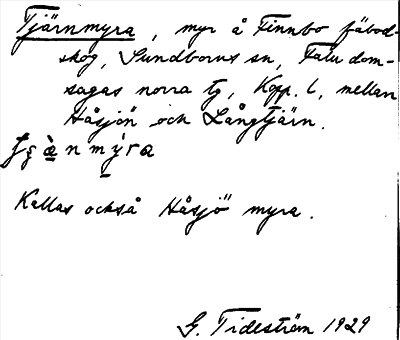 Tjärnmyra, myr å Finnbo fäbod-
skog, Sundborns sn, Falu dom-
sagas norra tg, Kopp. l, mellan
Håsjön och Långtjärn.
Kallas också Håsjö myra.
G. Tideström 1929